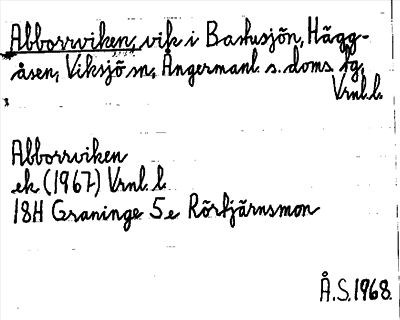 Abborrviken, vik i Baksjön, Hägg-
åsen, Viksjö sn, Ångermanl. s. doms fg,
Vrnl. l.
Abborrviken
ek (1967) Vrnl. l.
18H Graninge 5e Rörtjärnsmon
Å.S. 1968.